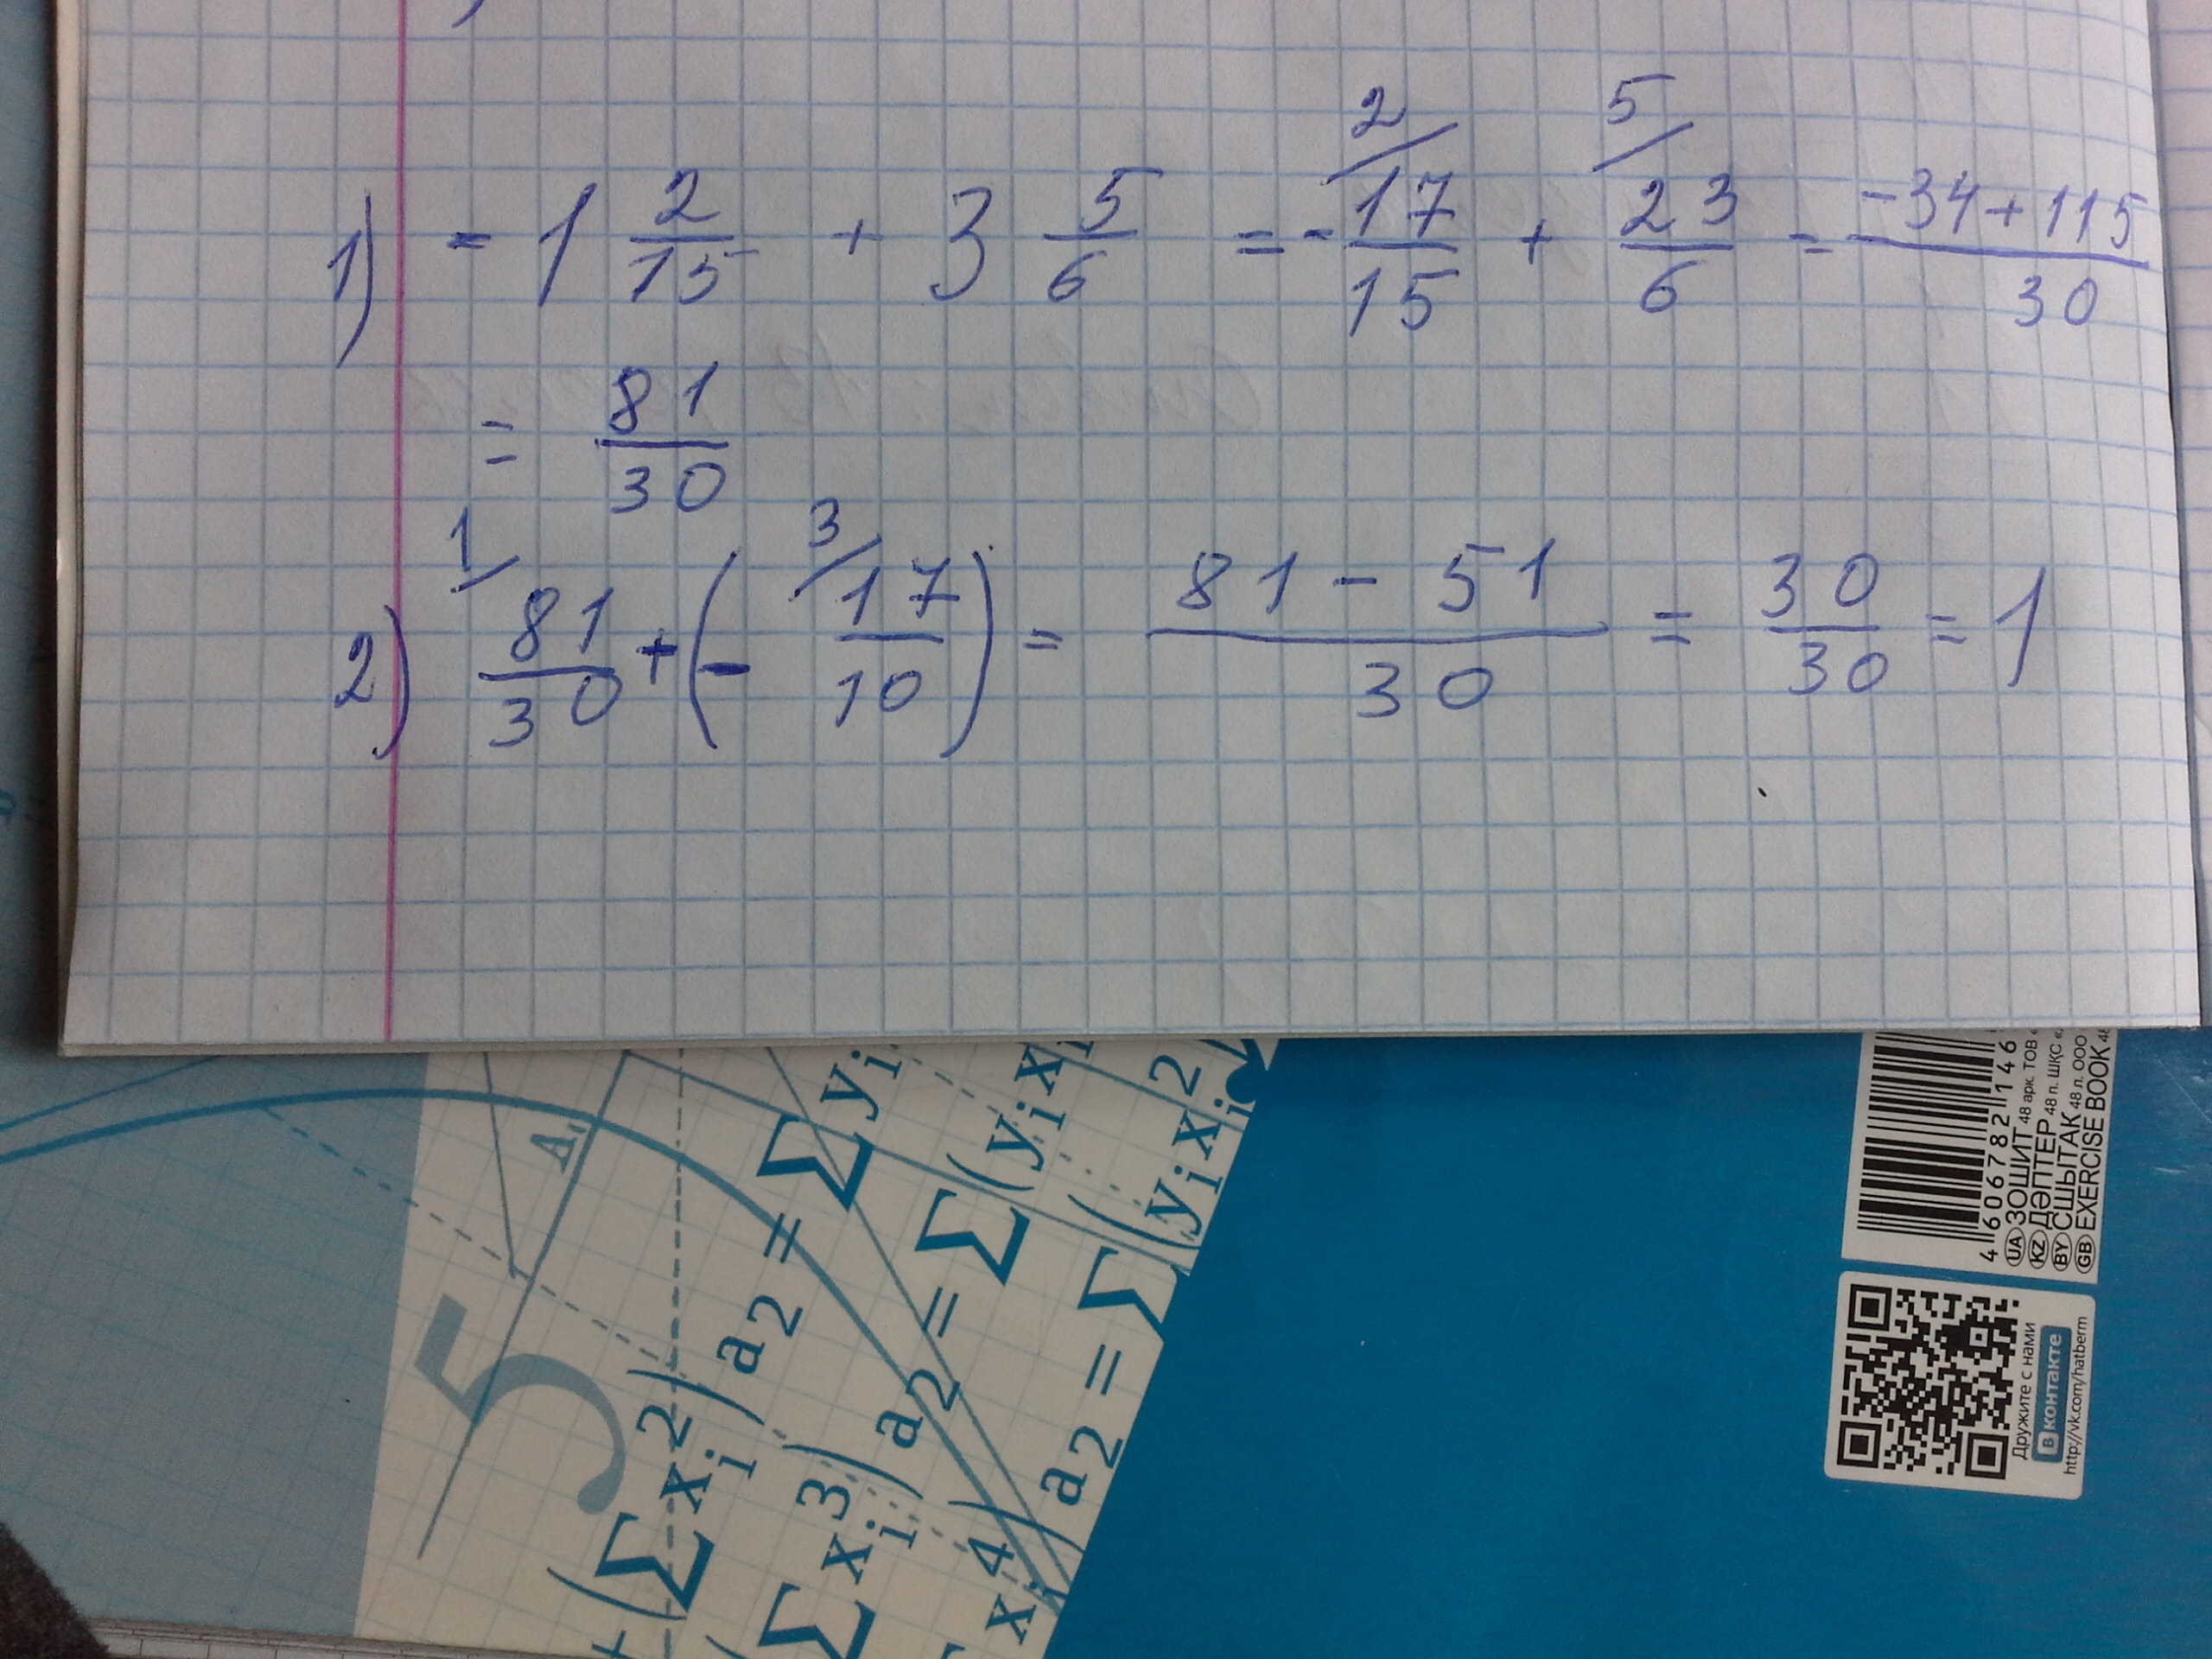 1) - 1 2/15 + 3 5/6 = - 2/ 17/15 + 5/ 23/6 = -34+115/30
= 81/30
2) 1/ 81/30 + (- 3/ 17/10) = 81 - 51/30 = 30/30 = 1
A₁
5
a₂ = Σ yᵢ
+ (Σ xᵢ²) a₂ = Σ(yᵢxᵢ
(Σ xᵢ³) a₂ = Σ(yᵢxᵢ²
xᵢ⁴)
4 606782 146
UA ЗОШИТ 48 арк. ТОВ
KZ ДӘПТЕР 48 п. ШҚС
BY СШЫТАК 48 л. ООО
GB EXERCISE BOOK 48
Дружите с нами
В контакте
http://vk.com/hatberm